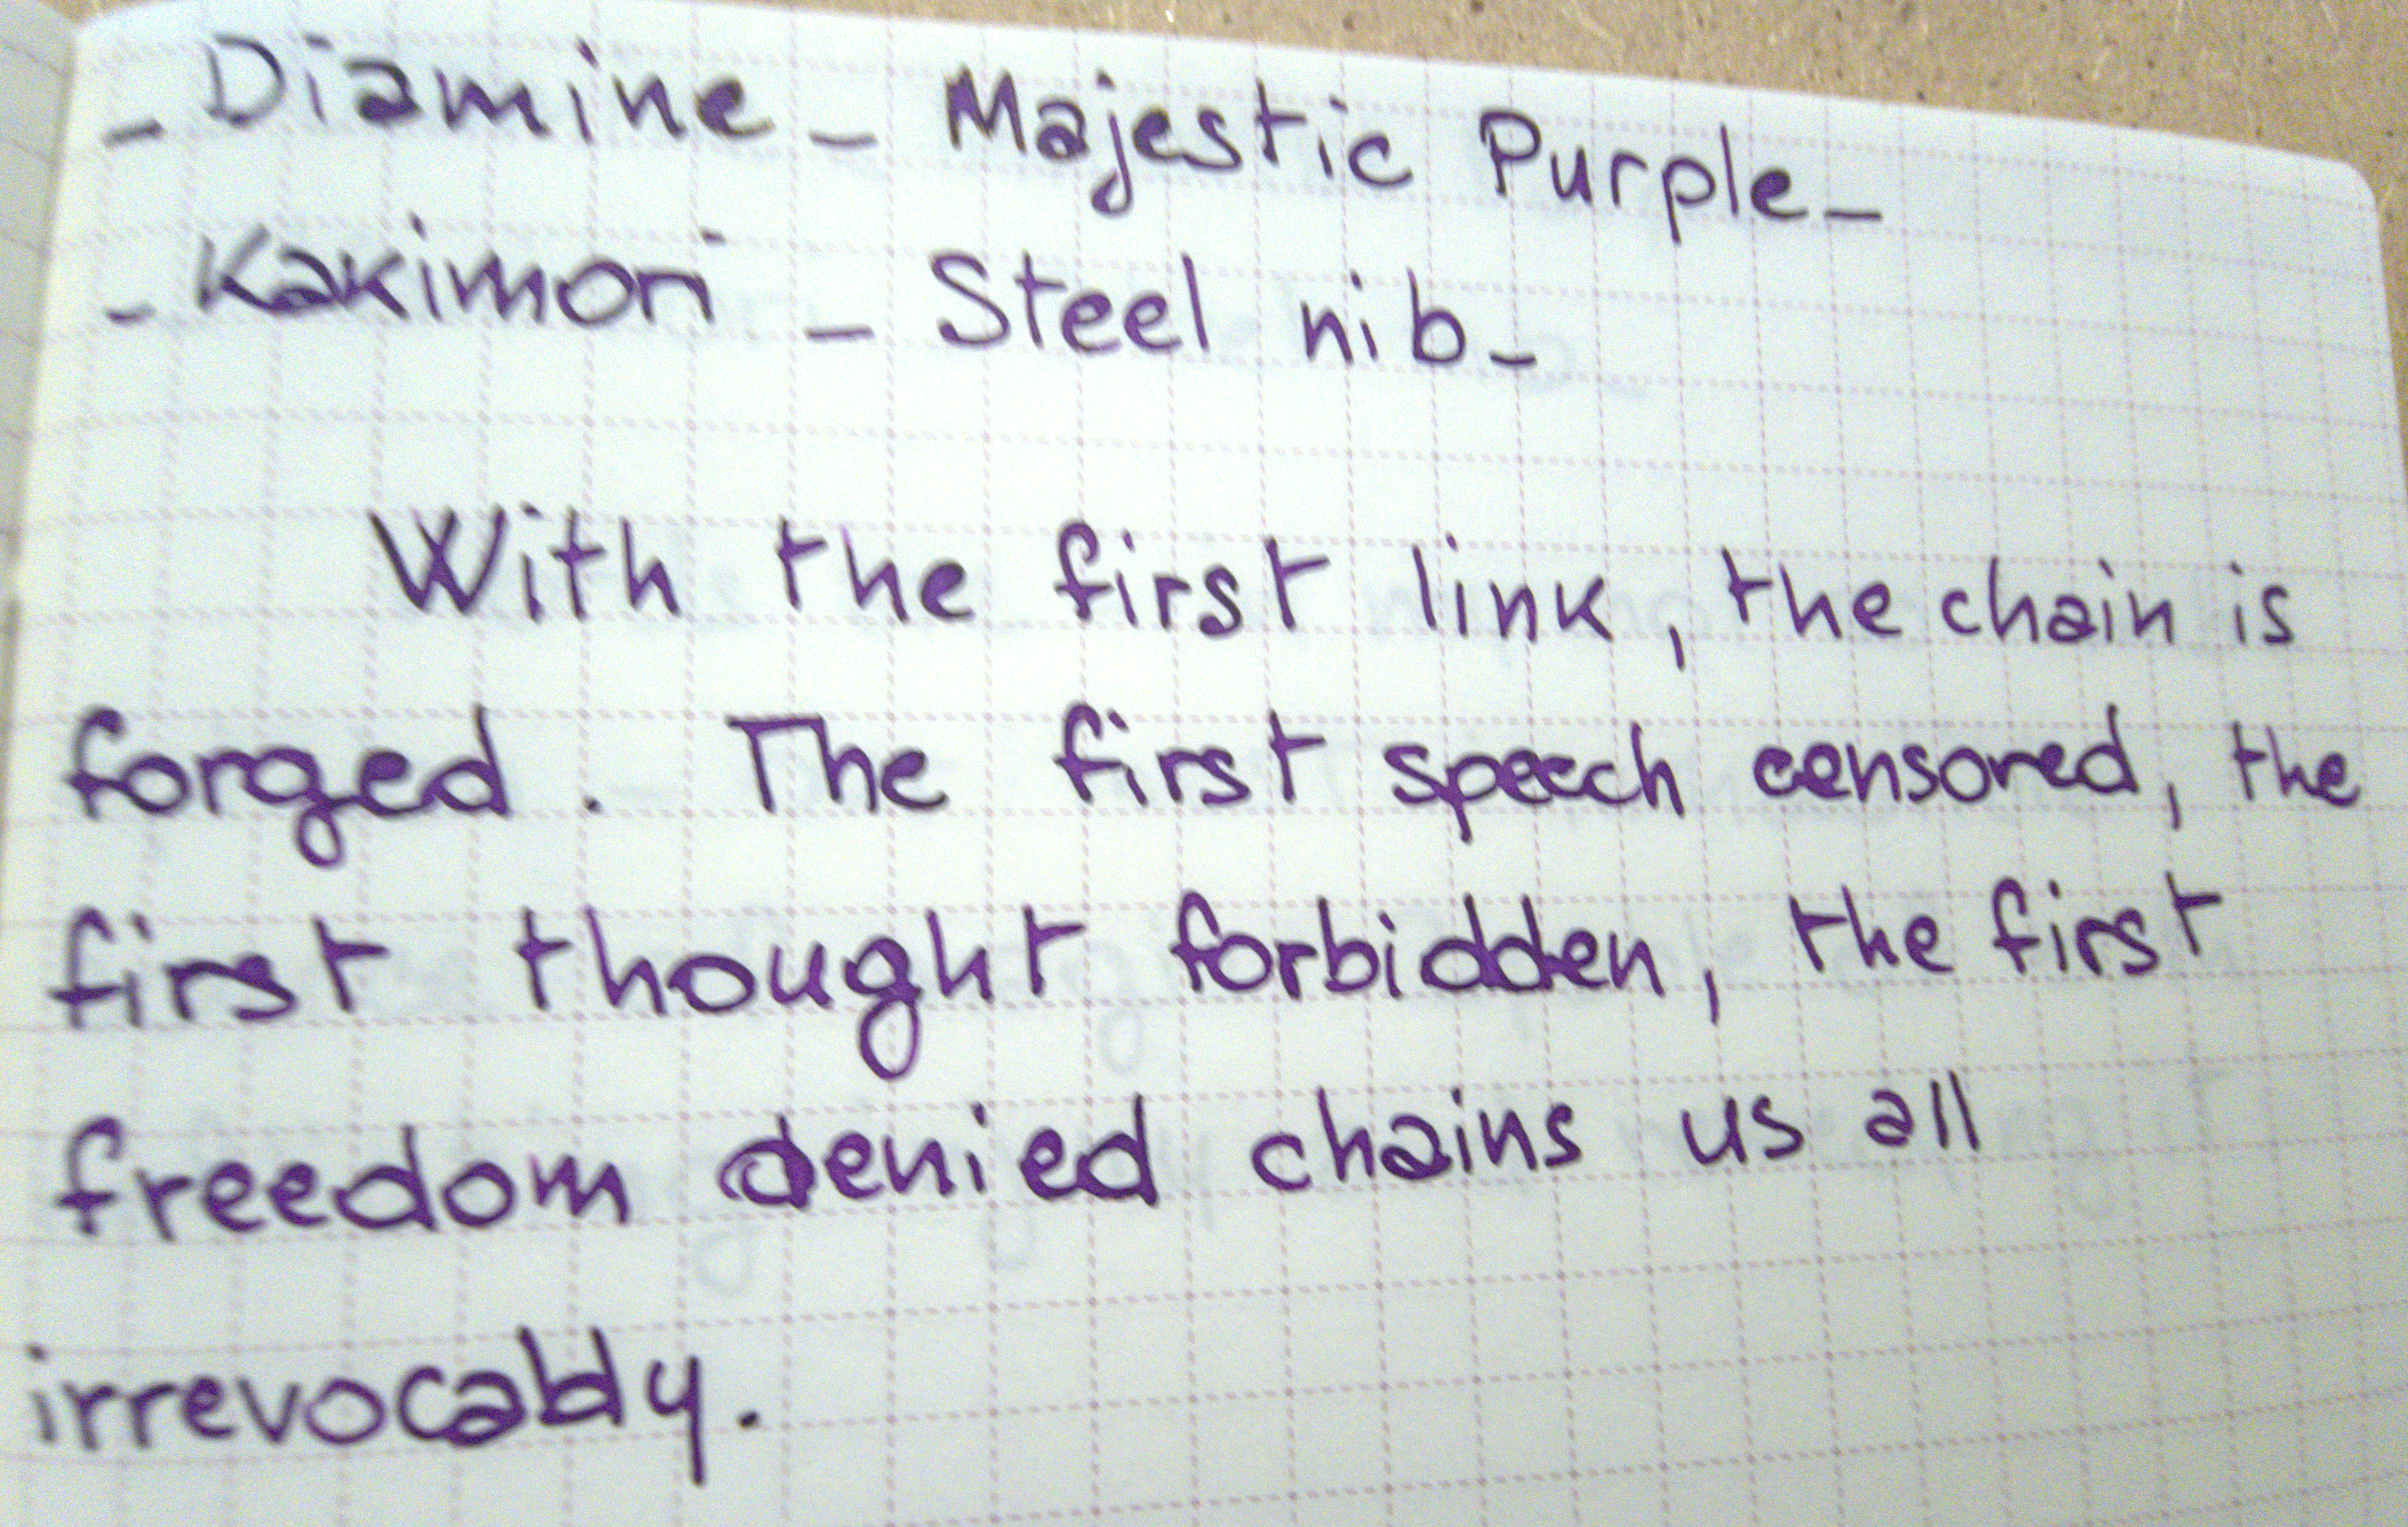 - Diamine - Majestic Purple -
- Kakimori - Steel nib -
With the first link, the chain is
forged. The first speech censored, the
first thought forbidden, the first
freedom denied chains us all
irrevocably.